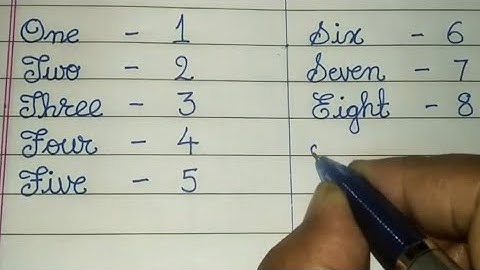 One - 1
Two - 2
Three - 3
Four - 4
Five - 5
Six - 6
Seven - 7
Eight - 8